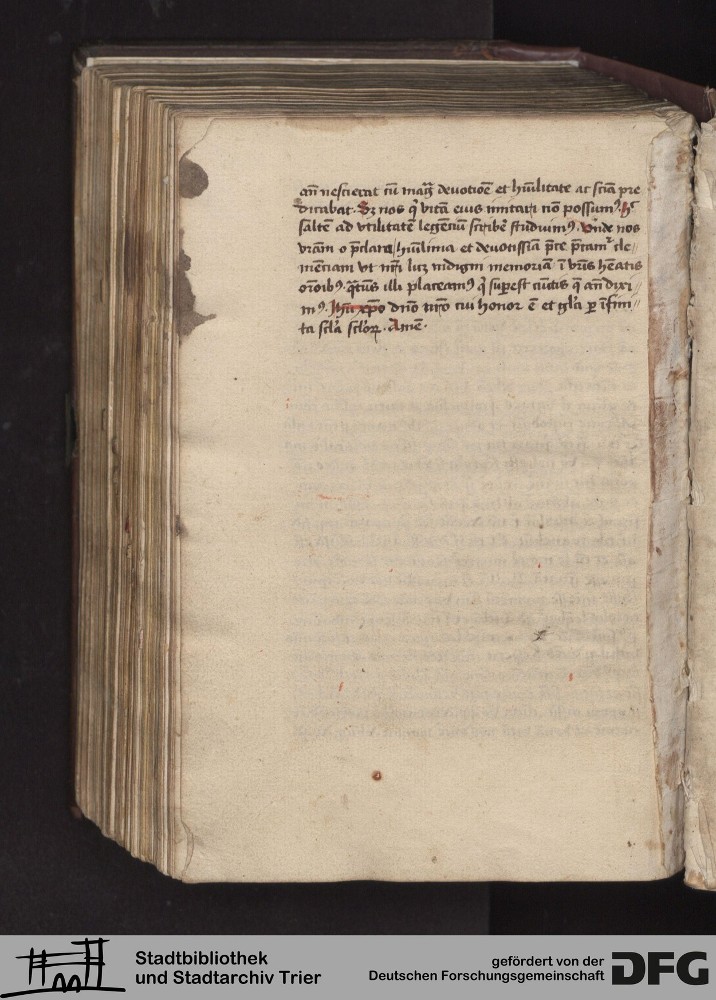 an̄ nesciebat cū maḡ deuotiōe et hūilitate ac sciā pre
dicabat. Sꝫ nos qͥ vitā eius imitari nō possumꝰ. hͨ
saltē ad vtilitatē legētiū scribē studuimꝰ. Vnde nos
vrām o p̄clara hūilima et deuotissīa p̄ce p̄camʳ cle-
mēciam vt nr̄i lucꝫ indigni memoriā ī vr̄is hēatis
orōibꝰ. qͣtūs illi placeamꝰ qͥ suꝑest cūctis q̄ an̄ dixi-
mꝰ. Ihū xp̄o dn̄o nr̄o cui honor ē et gl̓a ꝑ īfini-
ta scl̓a scl̓oꝝ. Amē.
Stadtbibliothek
und Stadtarchiv Trier
gefördert von der
Deutschen Forschungsgemeinschaft
DFG